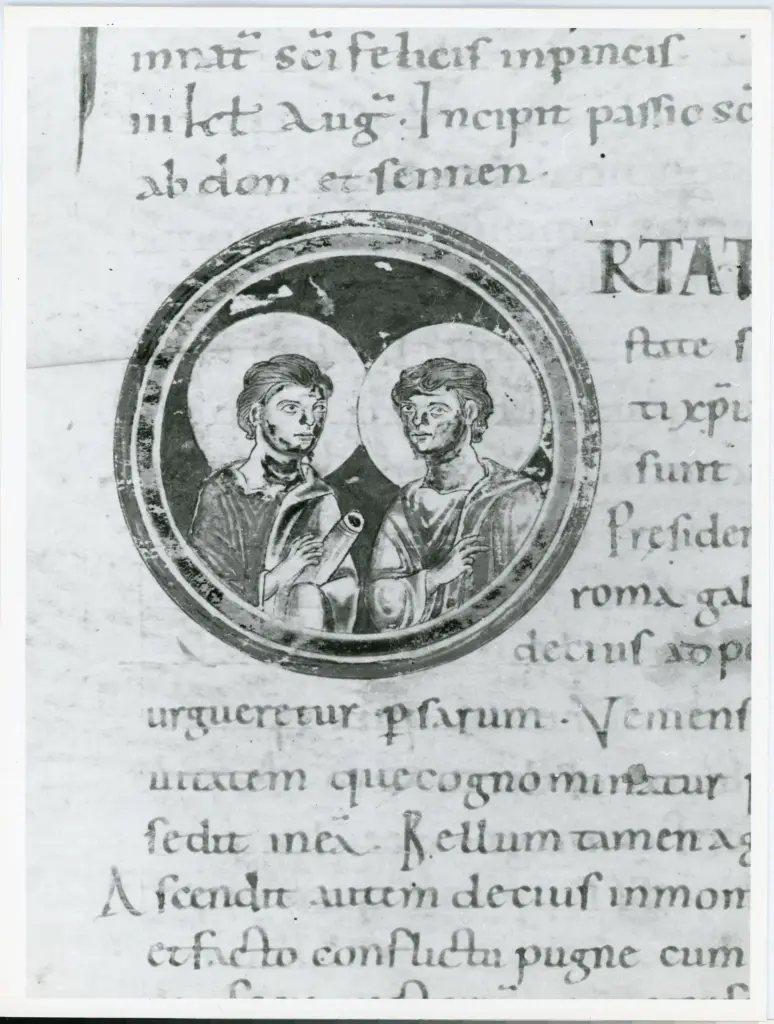 in nat̄ sc̄i felicis inpincis
iii kɫ Aug̅. Incipit passio sc̄
abdon et sennen.
RTAT
state s
ti xp̄i
sunt
Presiden
roma gal
decius ad pe
urgueretur ꝑsarum. Veniens
uitatem que cognominatur
sedit inea. Bellum tamen ag
Ascendit autem decius in mon
et facto conflictu pugne cum